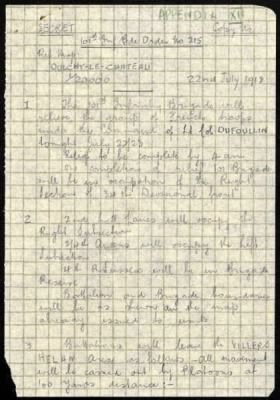 APPENDIX XII
SECRET
Copy No
101st Inf Bde Order No 215
Ref Map
OULCHY-LE-CHATEAU
1/20000
22nd July 1918
1 The 101st Infantry Brigade will
relieve the group of French troops
under the command of Lt Col DUFOULLIN
tonight July 22/23
Relief to be complete by 4 am
On completion of relief 101 Brigade
will be in occupation of the Right
Section of 34th Divisional front
2 2nd Loyal Lancs will occupy the
Right Subsection
2/4th Queens will occupy the left
Subsection
4th R Sussex will be in Brigade
Reserve
Battalion and Brigade boundaries
will be as shown on the map
already issued to units
3 Battalions will leave the VILLERS
HELON area as follows - all movement
will be carried out by Platoons at
100 yards distance :-